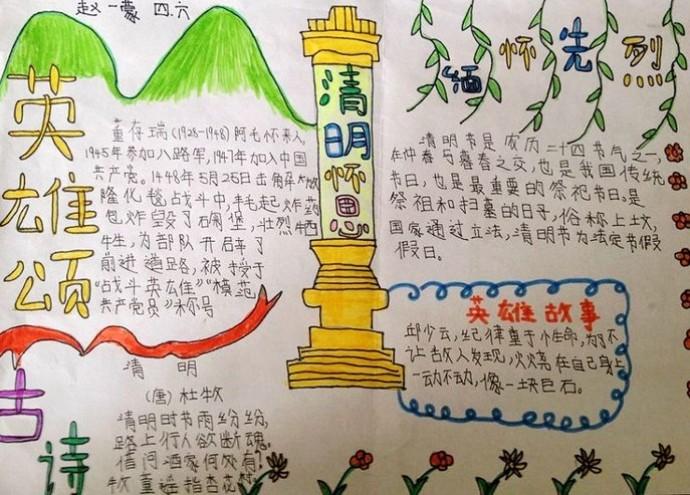 赵一蒙 四.六
英雄颂
董存瑞(1928-1948)河毛怀来人
1945年参加八路军,1947年加入中国
共产党。1448年5月25日击解
隆化战斗中,毛起炸药
包炸毁了碉堡,壮烈牺
牲,为部队开辟了
前进道路,被授于
"战斗英雄""模范
共产党员"称号
清明怀思
缅怀先烈
清明节是农历二十四节气之一,
在仲春与暮春之交,也是我国传统
节日,也是最重要的祭祀节日。是
祭祖和扫墓的日子,俗称上坟,
国家通过立法,清明节为法定节假
假日。
英雄故事
邱少云,纪律重于性命,为不
让敌人发现,火烧在自己身上
一动不动,像一块巨石。
古诗
清 明
(唐)杜牧
清明时节雨纷纷,
路上行人欲断魂。
借问酒家何处有?
牧童遥指杏花村